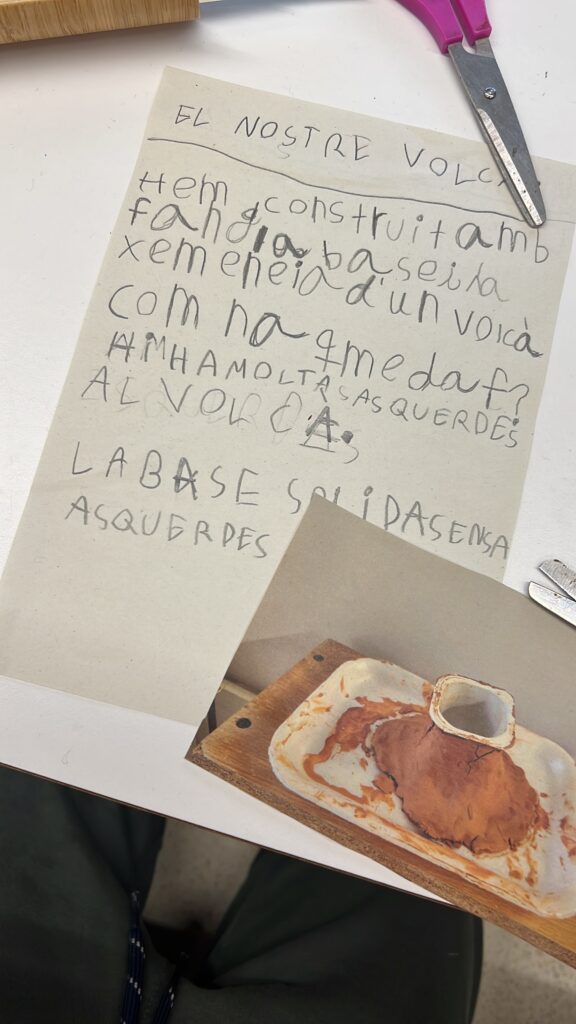 EL NOSTRE VOLCÀ
Hem construit amb
fang la base i la
xemeneia d'un volcà
com ha qmedat?
HiHHAMOLTASASQUERDES
AL VOLCÀ.
LABASE SOLIDASENSA
ASQUERDES